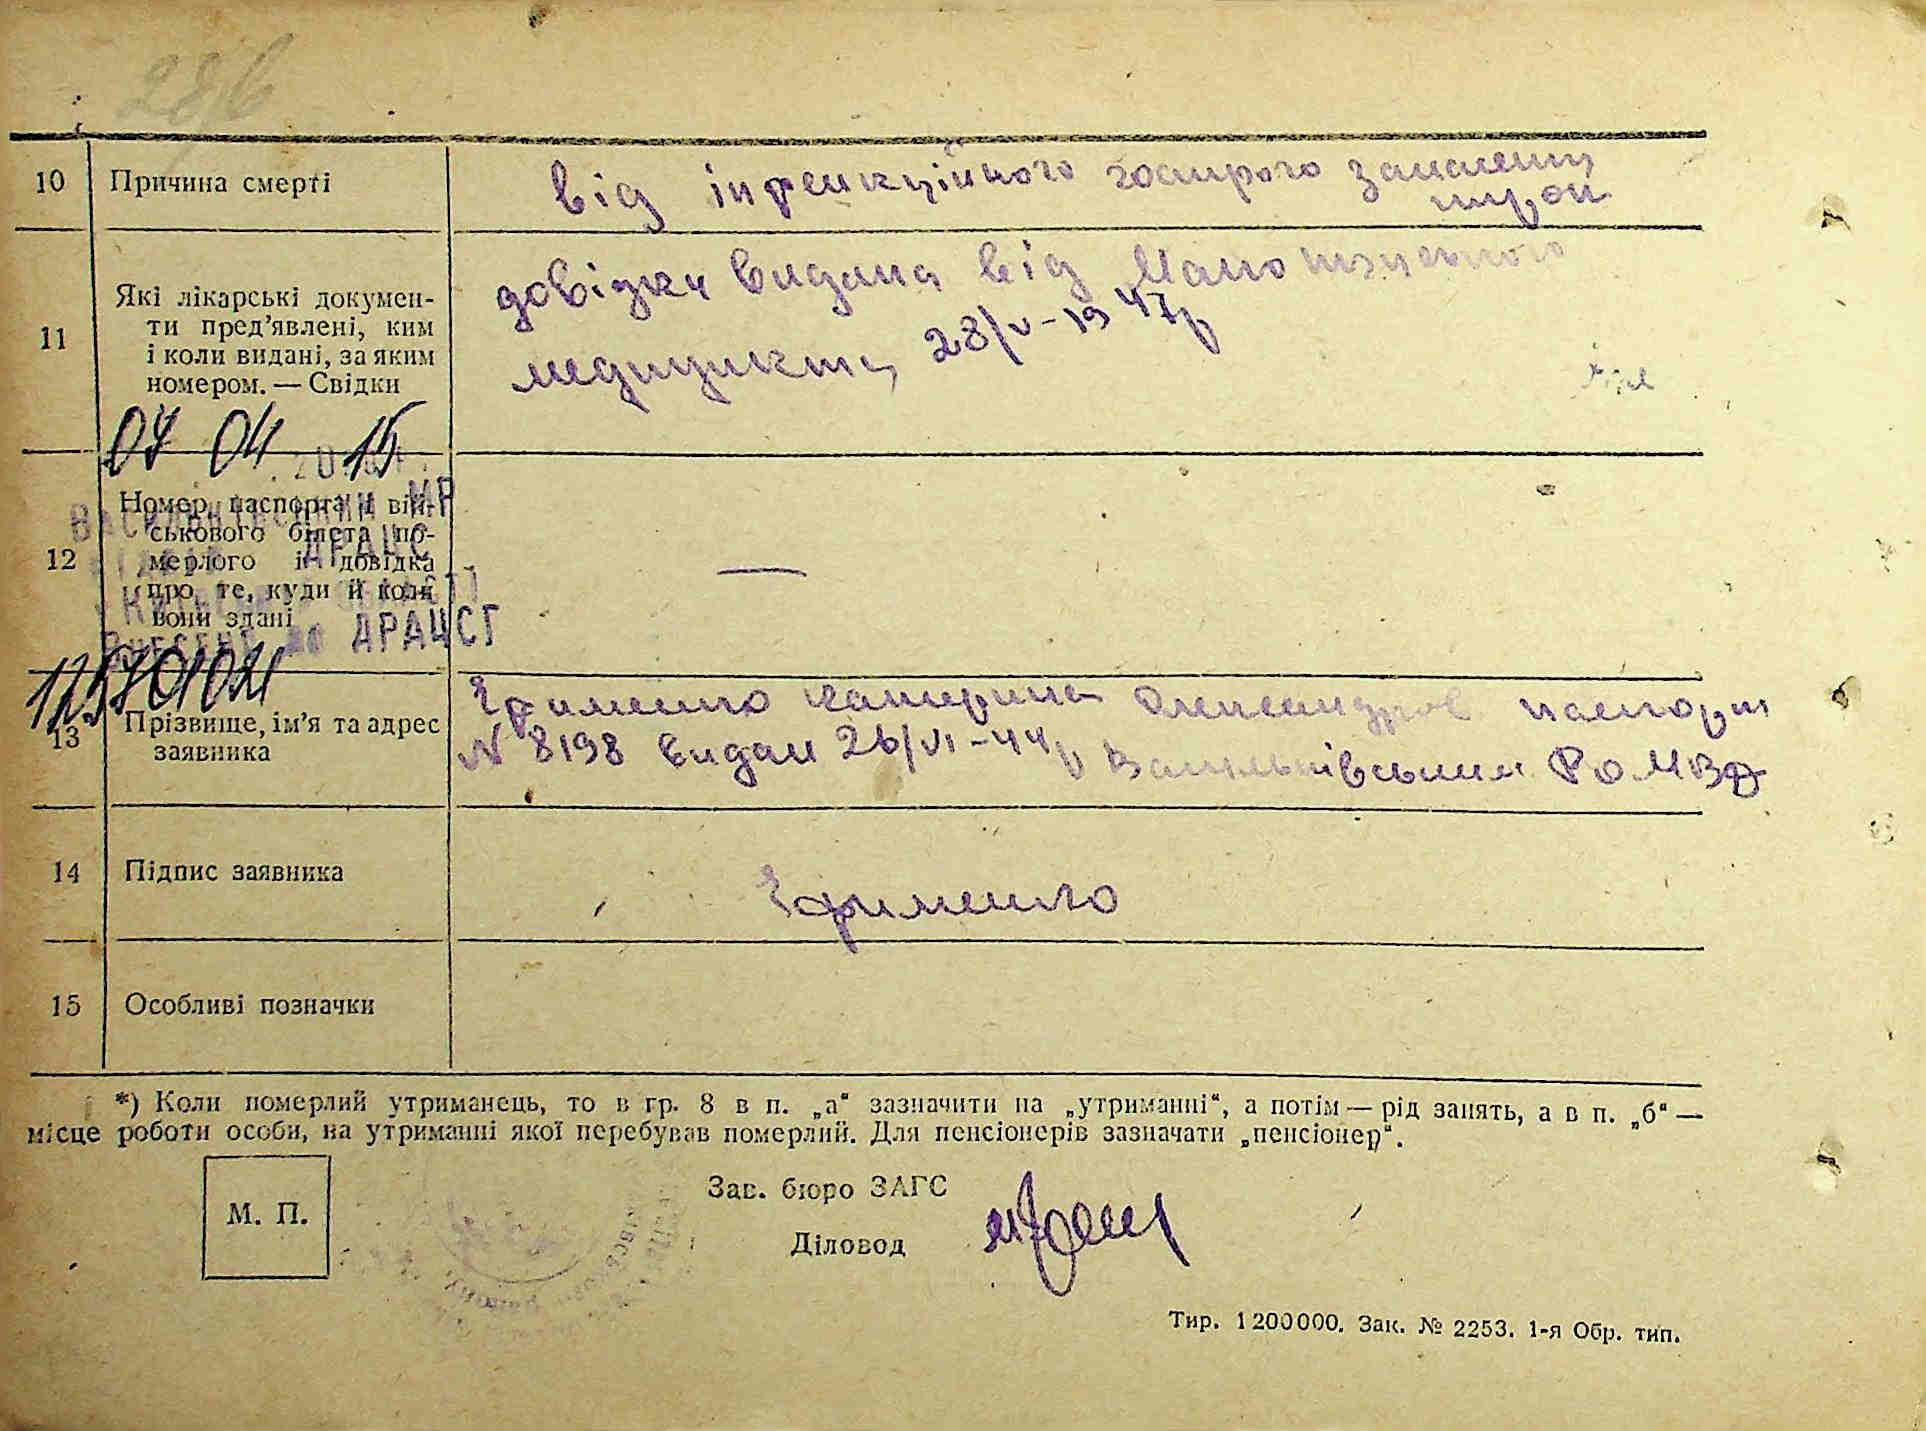 286
10 Причина смерті
від інфекційного гострого запалення
нирок
11 Які лікарські докумен-
ти пред’явлені, ким
і коли видані, за яким
номером. — Свідки
довідка видана від
медпункта 28/V-1947р
07 04 15
12 Номер паспорта і вій-
ськового білета по-
мерлого і довідка
про те, куди й коли
вони здані
—
МР
ДРАЦС
ДРАЦСГ
13 Прізвище, ім’я та адрес
заявника
Єфименко Катерина паспорт
№ 8198 видан 26/VI-44р Васильківським Ро МВД
14 Підпис заявника
Єфименко
15 Особливі позначки
*) Коли померлий утриманець, то в гр. 8 в п. „а“ зазначити на „утриманні“, а потім — рід занять, а в п. „б“ —
місце роботи особи, на утриманні якої перебував померлий. Для пенсіонерів зазначати „пенсіонер“.
М. П.
Зав. бюро ЗАГС
Діловод
Тир. 1 200 000. Зак. № 2253. 1-я Обр. тип.